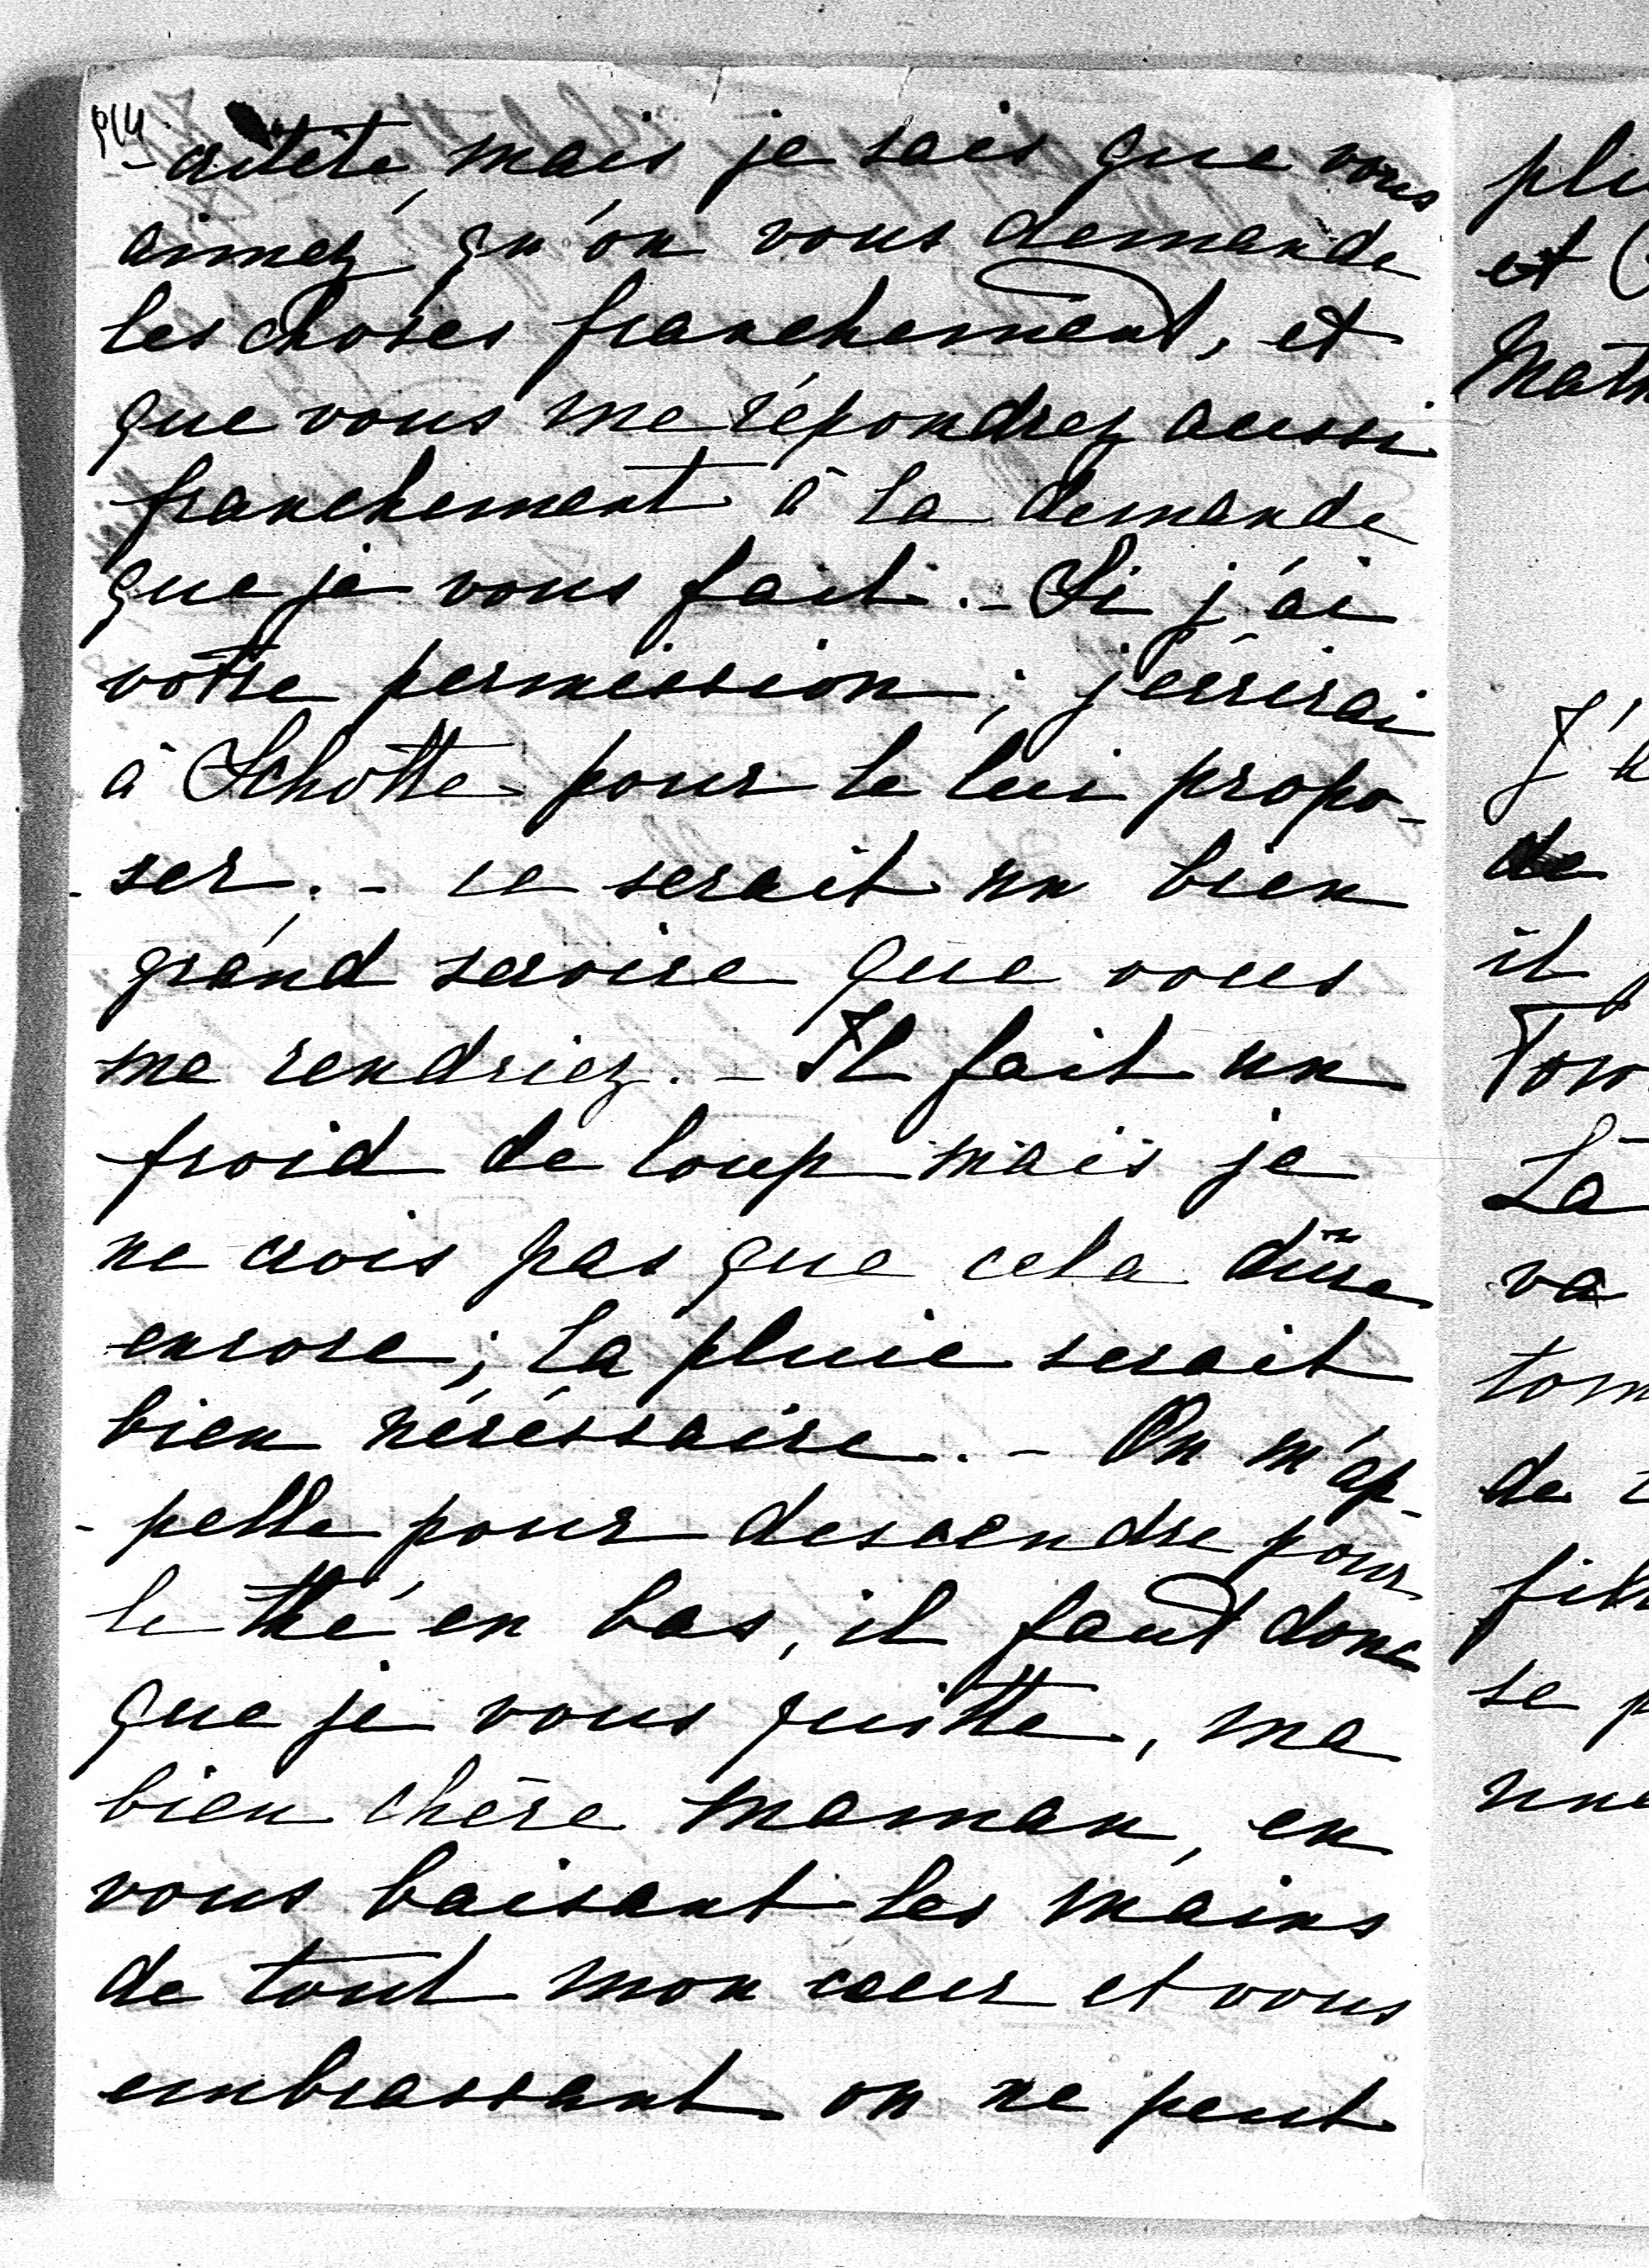 -cretete, mais je sais que vous
aimez qu'on vous demande
les choses franchement, et
que vous me répondrez aussi
franchement à la demande
que je vous fait. - Si j'ai
votre permission; j'écrirai
à Schotte pour le lui propo-
-ser. - ce serait un bien
grand service que vous
me rendriez. - Il fait un
froid de loup mais je
ne crois pas que cela dure
encore; la pluie serait
bien nécéssaire. - On m'ap-
-pelle pour descendre pour
le thé en bas, il faut donc
que je vous quitte, ma
bien chère maman, en
vous baisant les mains
de tout mon cœur et vous
embrassant on ne peut
et
J'
de
il
La
va
de
se